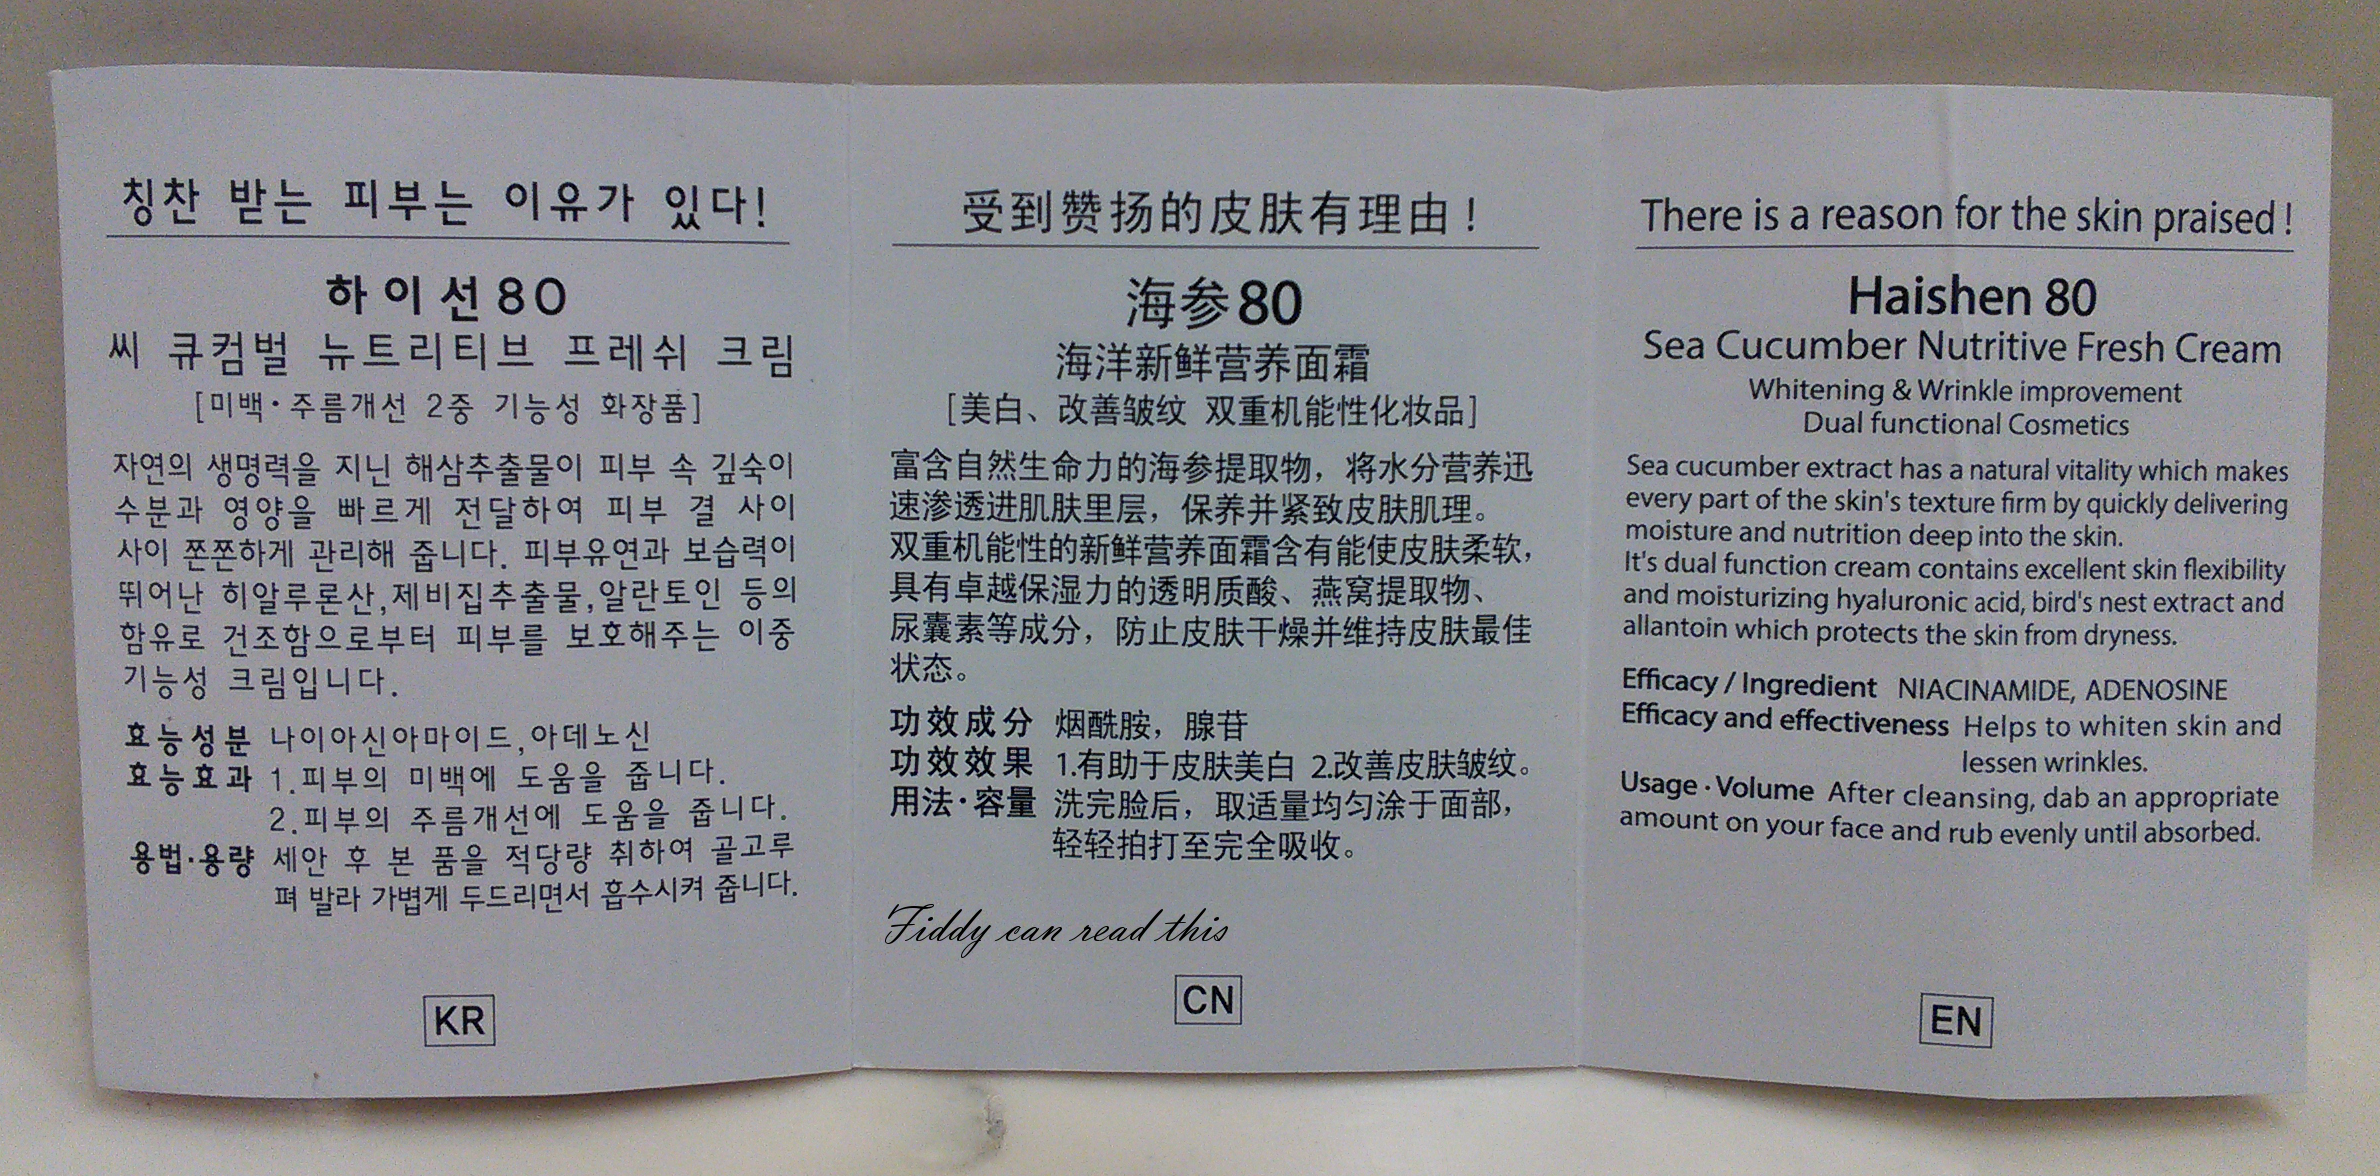 칭찬 받는 피부는 이유가 있다!
하이선80
씨 큐컴벌 뉴트리티브 프레쉬 크림
[미백·주름개선 2중 기능성 화장품]
자연의 생명력을 지닌 해삼추출물이 피부 속 깊숙이
수분과 영양을 빠르게 전달하여 피부 결 사이
사이 쫀쫀하게 관리해 줍니다. 피부유연과 보습력이
뛰어난 히알루론산,제비집추출물,알란토인 등의
함유로 건조함으로부터 피부를 보호해주는 이중
기능성 크림입니다.
효능성분 나이아신아마이드,아데노신
효능효과 1.피부의 미백에 도움을 줍니다.
2.피부의 주름개선에 도움을 줍니다.
용법·용량 세안 후 본 품을 적당량 취하여 골고루
펴 발라 가볍게 두드리면서 흡수시켜 줍니다.
KR
受到赞扬的皮肤有理由！
海参80
海洋新鲜营养面霜
[美白、改善皱纹 双重机能性化妆品]
富含自然生命力的海参提取物，将水分营养迅
速渗透进肌肤里层，保养并紧致皮肤肌理。
双重机能性的新鲜营养面霜含有能使皮肤柔软，
具有卓越保湿力的透明质酸、燕窝提取物、
尿囊素等成分，防止皮肤干燥并维持皮肤最佳
状态。
功效成分 烟酰胺，腺苷
功效效果 1.有助于皮肤美白 2.改善皮肤皱纹。
用法·容量 洗完脸后，取适量均匀涂于面部，
轻轻拍打至完全吸收。
Fiddy can read this
CN
There is a reason for the skin praised!
Haishen 80
Sea Cucumber Nutritive Fresh Cream
Whitening & Wrinkle improvement
Dual functional Cosmetics
Sea cucumber extract has a natural vitality which makes
every part of the skin's texture firm by quickly delivering
moisture and nutrition deep into the skin.
It's dual function cream contains excellent skin flexibility
and moisturizing hyaluronic acid, bird's nest extract and
allantoin which protects the skin from dryness.
Efficacy / Ingredient NIACINAMIDE, ADENOSINE
Efficacy and effectiveness Helps to whiten skin and
lessen wrinkles.
Usage · Volume After cleansing, dab an appropriate
amount on your face and rub evenly until absorbed.
EN